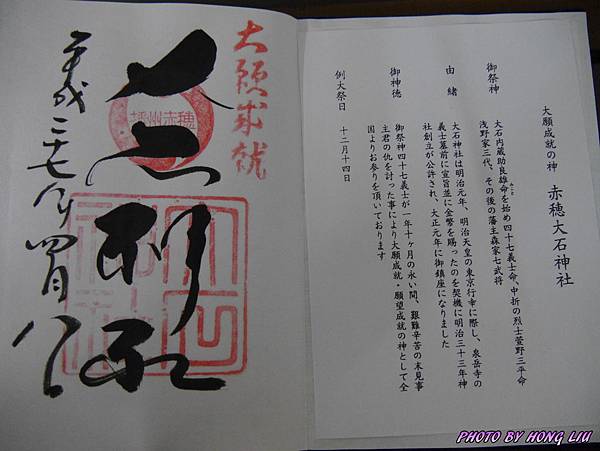 大願成就の神　赤穂大石神社
御祭神
大石内蔵助良雄命を始め四十七義士命、中折の烈士萱野三平命
みこと
浅野家三代、その後の藩主森家七武将
由緒
大石神社は明治元年、明治天皇の東京行幸に際し、泉岳寺の
義士墓前に宣旨並に金幣を賜ったのを契機に明治三十三年神
社創立が公許され、大正元年に御鎮座になりました
御神徳
御祭神四十七義士が一年十ヶ月の永い間、艱難辛苦の末見事
主君の仇を討った事により大願成就・願望成就の神として全
国よりお参りを頂いております
例大祭日　十二月十四日
大願成就
播州赤穂
大石神社
平成二十七年四月八
PHOTO BY HONG LIU